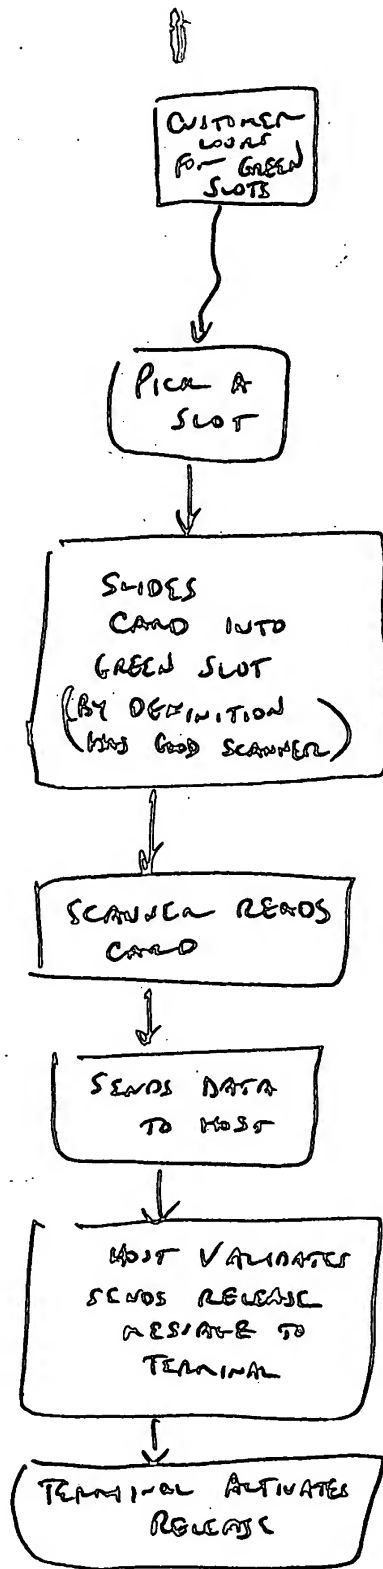 CUSTOMER
LOOKS
FOR GREEN
SLOTS
PICK A
SLOT
SLIDES
CARD INTO
GREEN SLOT
(BY DEFINITION
HAS GOOD SCANNER)
SCANNER READS
CARD
SENDS DATA
TO HOST
HOST VALIDATES
SENDS RELEASE
MESSAGE TO
TERMINAL
TERMINAL ACTIVATES
RELEASE